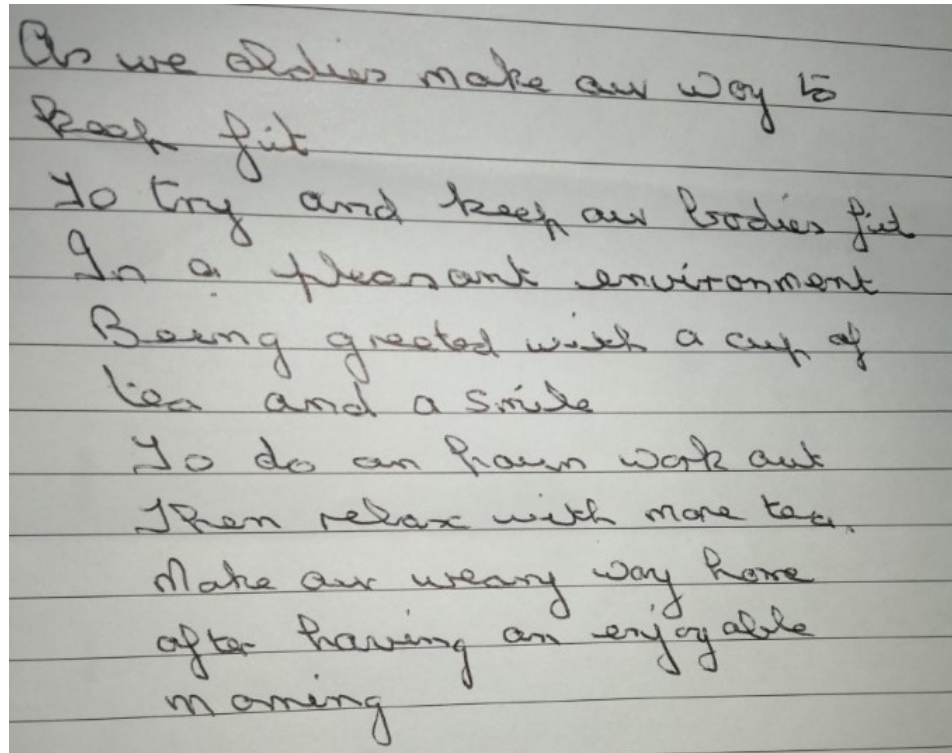 As we oldies make our way to
keep fit
To try and keep our bodies fit
In a pleasant environment
Being greeted with a cup of
tea and a smile
To do an hours work out
Then relax with more tea.
Make our weary way home
after having an enjoyable
morning